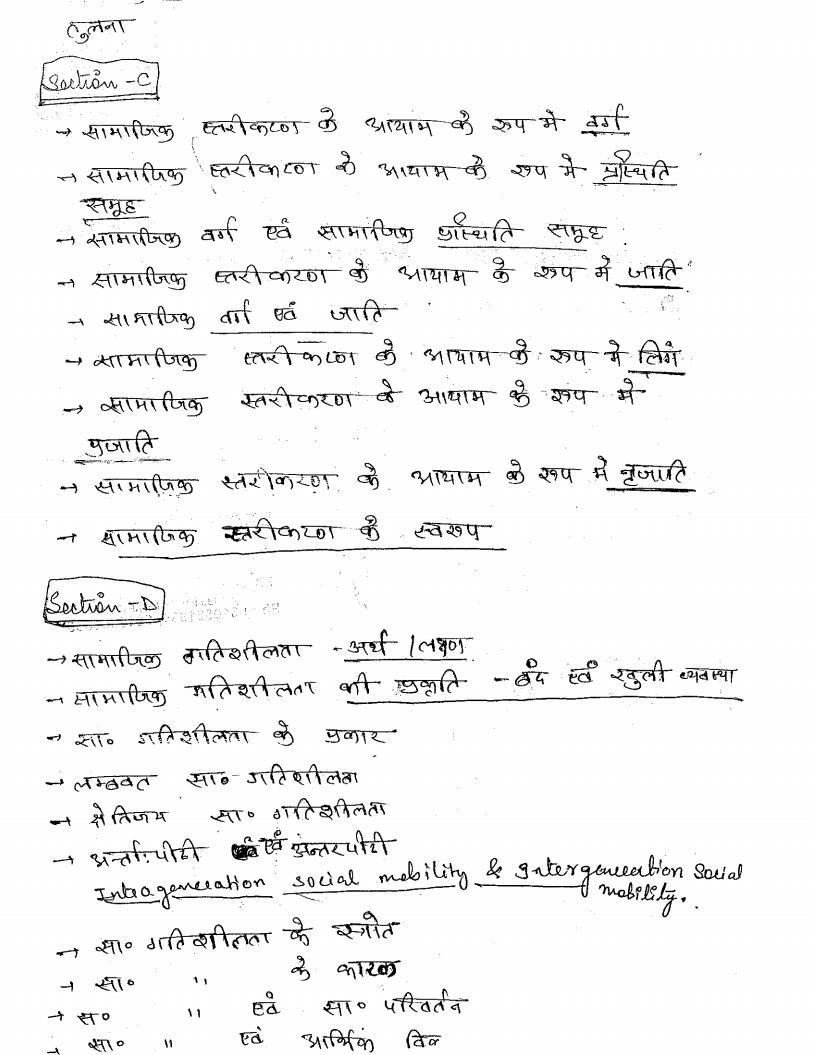 तुलना
Section -C
→ सामाजिक स्तरीकरण के आयाम के रूप मे वर्ग
→ सामाजिक स्तरीकरण के आयाम के रूप मे प्रस्थिति
समूह
→ सामाजिक वर्ग एवं सामाजिक प्रस्थिति समूह
→ सामाजिक स्तरीकरण के आयाम के रूप में जाति
→ सामाजिक वर्ग एवं जाति
→ सामाजिक स्तरीकरण के आयाम के रूप मे लिंग
→ सामाजिक स्तरीकरण के आयाम के रूप मे
प्रजाति
→ सामाजिक स्तरीकरण के आयाम के रूप में नृजाति
→ सामाजिक स्तरीकरण के स्वरूप
Section -D
→ सामाजिक गतिशीलता - अर्थ / लक्षण
→ सामाजिक गतिशीलता की प्रकृति - बंद एवं खुली व्यवस्था
→ सा० गतिशीलता के प्रकार
→ लम्बवत सा० गतिशीलता
→ क्षैतिजय सा० गतिशीलता
→ अर्न्तःपीढी एवं अन्तरपीढी
Intrageneration social mobility & Intergeneration Social
mobility.
→ सा० गतिशीलता के स्त्रोत
→ सा० " के कारक
→ स० " एवं सा० परिवर्तन
→ सा० " एवं आर्थिक